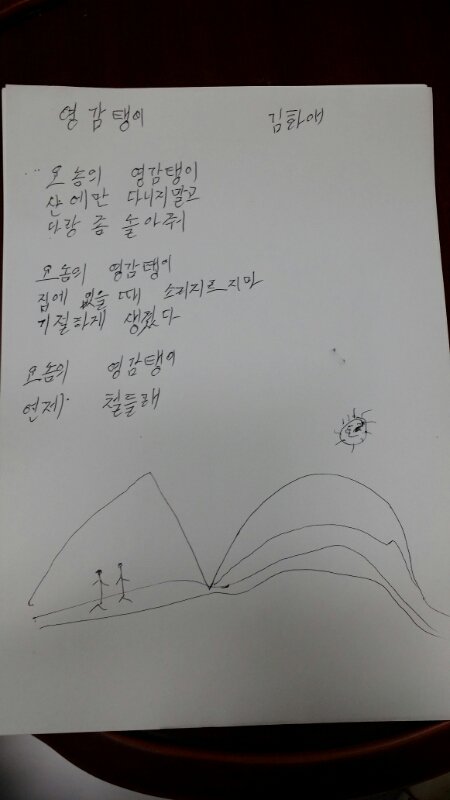 영감탱이 김화애
요놈의 영감탱이
산에만 다니지말고
나랑 좀 놀아줘
요놈의 영감탱이
집에 있을때 소리지르지마
기절하게 생겼다
요놈의 영감탱이
언제 철들래